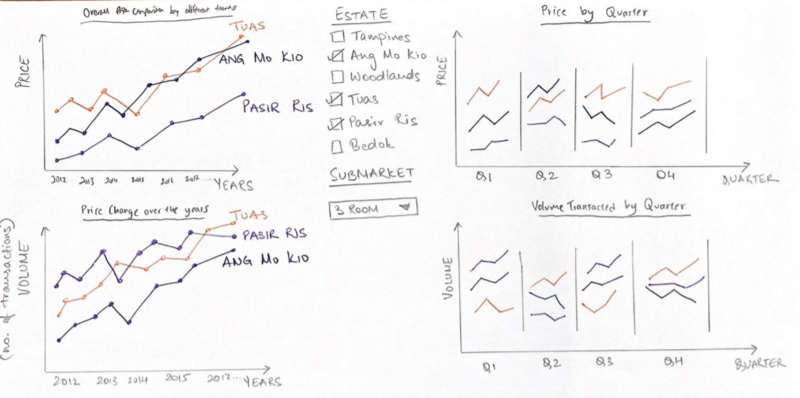 Overall Comparison by different towns
PRICE
TUAS
ANG MO KIO
PASIR RIS
2012 2013 2014 2015 .... YEARS
ESTATE
Tampines
Ang Mo Kio
Woodlands
Tuas
Pasir Ris
Bedok
SUBMARKET
3 ROOM
Price by Quarter
PRICE
Q1 Q2 Q3 Q4 QUARTER
Price Change over the years
VOLUME
(no. of transactions)
TUAS
PASIR RIS
ANG MO KIO
2012 2013 2014 2015 2017... YEARS
Volume Transacted by Quarter
VOLUME
Q1 Q2 Q3 Q4 QUARTER